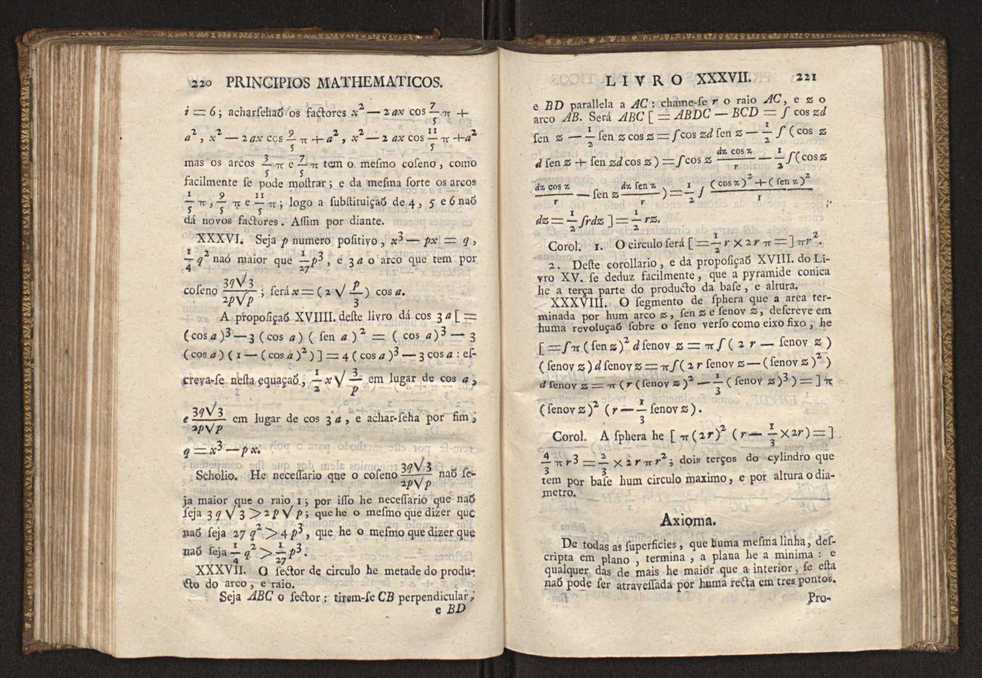 220 PRINCIPIOS MATHEMATICOS.
i = 6; acharſehaõ os factores x² — 2 ax cos 7/5 π +
a², x² — 2 ax cos 9/5 π + a², x² — 2 ax cos 11/5 π + a²
mas os arcos 3/5 π e 7/5 π tem o meſmo coſeno, como
facilmente ſe pode moſtrar; e da meſma ſorte os arcos
1/5 π, 9/5 π e 11/5 π; logo a ſubſtituiçaõ de 4, 5 e 6 naõ
dá novos factores. Aſſim por diante.
XXXVI. Seja p numero poſitivo, x³ — px = q,
1/4 q² naõ maior que 1/27 p³, e 3 a o arco que tem por
coſeno 3q√3/2p√p; ſerá x = (2 √ p/3) cos a.
A propoſiçaõ XVIIII. deſte livro dá cos 3 a [ =
(cos a)³ — 3 (cos a) ( ſen a )² = ( cos a)³ — 3
(cos a) ( 1 — (cos a )² ) ] = 4 ( cos a)³ — 3 cos a : eſ-
creva-ſe neſta equaçaõ, 1/2 x √ 3/p em lugar de cos a,
e 3q√3/2p√p em lugar de cos 3 a, e achar-ſeha por fim,
q = x³ — p x.
Scholio. He neceſſario que o coſeno 3q√3/2p√p naõ ſe-
ja maior que o raio 1; por iſſo he neceſſario que naõ
ſeja 3 q √ 3 > 2 p √ p; que he o meſmo que dizer que
naõ ſeja 27 q² > 4 p³, que he o meſmo que dizer que
naõ ſeja 1/4 q² > 1/27 p³.
XXXVII. O ſector de circulo he metade do produ-
cto do arco, e raio.
Seja ABC o ſector: tirem-ſe CB perpendicular,
e BD
LIVRO XXXVII. 221
e BD parallela a AC: chame-ſe r o raio AC, e z o
arco AB. Será ABC [ = ABDC — BCD = ∫ cos zd
ſen z — 1/2 ſen z cos z = ∫ cos zd ſen z — 1/2 ∫ ( cos z
d ſen z + ſen zd cos z ) = ∫ cos z dz cos z/r — 1/2 ∫ ( cos z
dz cos z/r — ſen z dz ſen z/r ) = 1/2 ∫ (cos z)² + (ſen z)²/r
dz = 1/2 ∫ rdz ] = 1/2 rz.
Corol. 1. O circulo ſerá [ = 1/2 r × 2 r π = ] π r².
2. Deſte corollario, e da propoſiçaõ XVIII. do Li-
vro XV. ſe deduz facilmente, que a pyramide conica
he a terça parte do producto da baſe, e altura.
XXXVIII. O ſegmento de ſphera que a area ter-
minada por hum arco z, ſen z e ſenov z, deſcreve em
huma revoluçaõ ſobre o ſeno verſo como eixo fixo, he
[ = ∫ π ( ſen z )² d ſenov z = π ∫ ( 2 r — ſenov z )
( ſenov z ) d ſenov z = π ∫ ( 2 r ſenov z — ( ſenov z )² )
d ſenov z = π ( r ( ſenov z )² — 1/3 ( ſenov z )³ ) = ] π
(ſenov z)² ( r — 1/3 ſenov z ).
Corol. A ſphera he [ π ( 2r )² ( r — 1/3 × 2r ) = ]
4/3 π r³ = 2/3 × 2 r π r²; dois terços do cylindro que
tem por baſe hum circulo maximo, e por altura o dia-
metro.
Axioma.
De todas as ſuperficies, que huma meſma linha, deſ-
cripta em plano, termina, a plana he a minima: e
qualquer das de mais he maior que a interior, ſe eſta
naõ pode ſer atraveſſada por huma recta em tres pontos.
Pro-